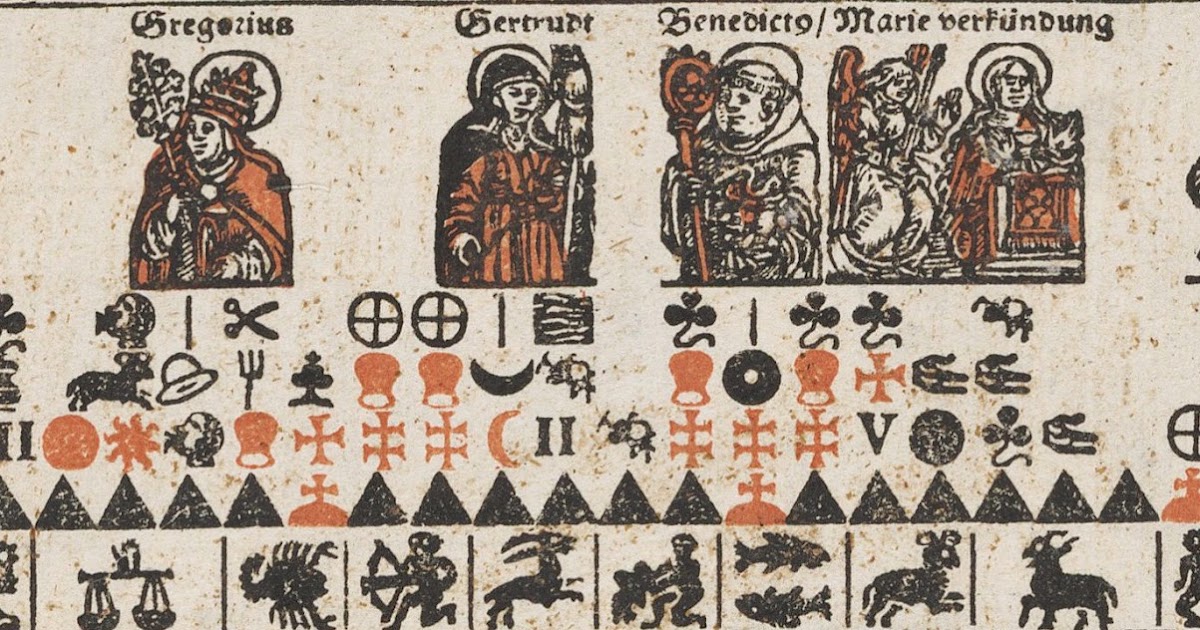 Gregorius Gertrudt Benedict9 / Marie verkündung
II II V